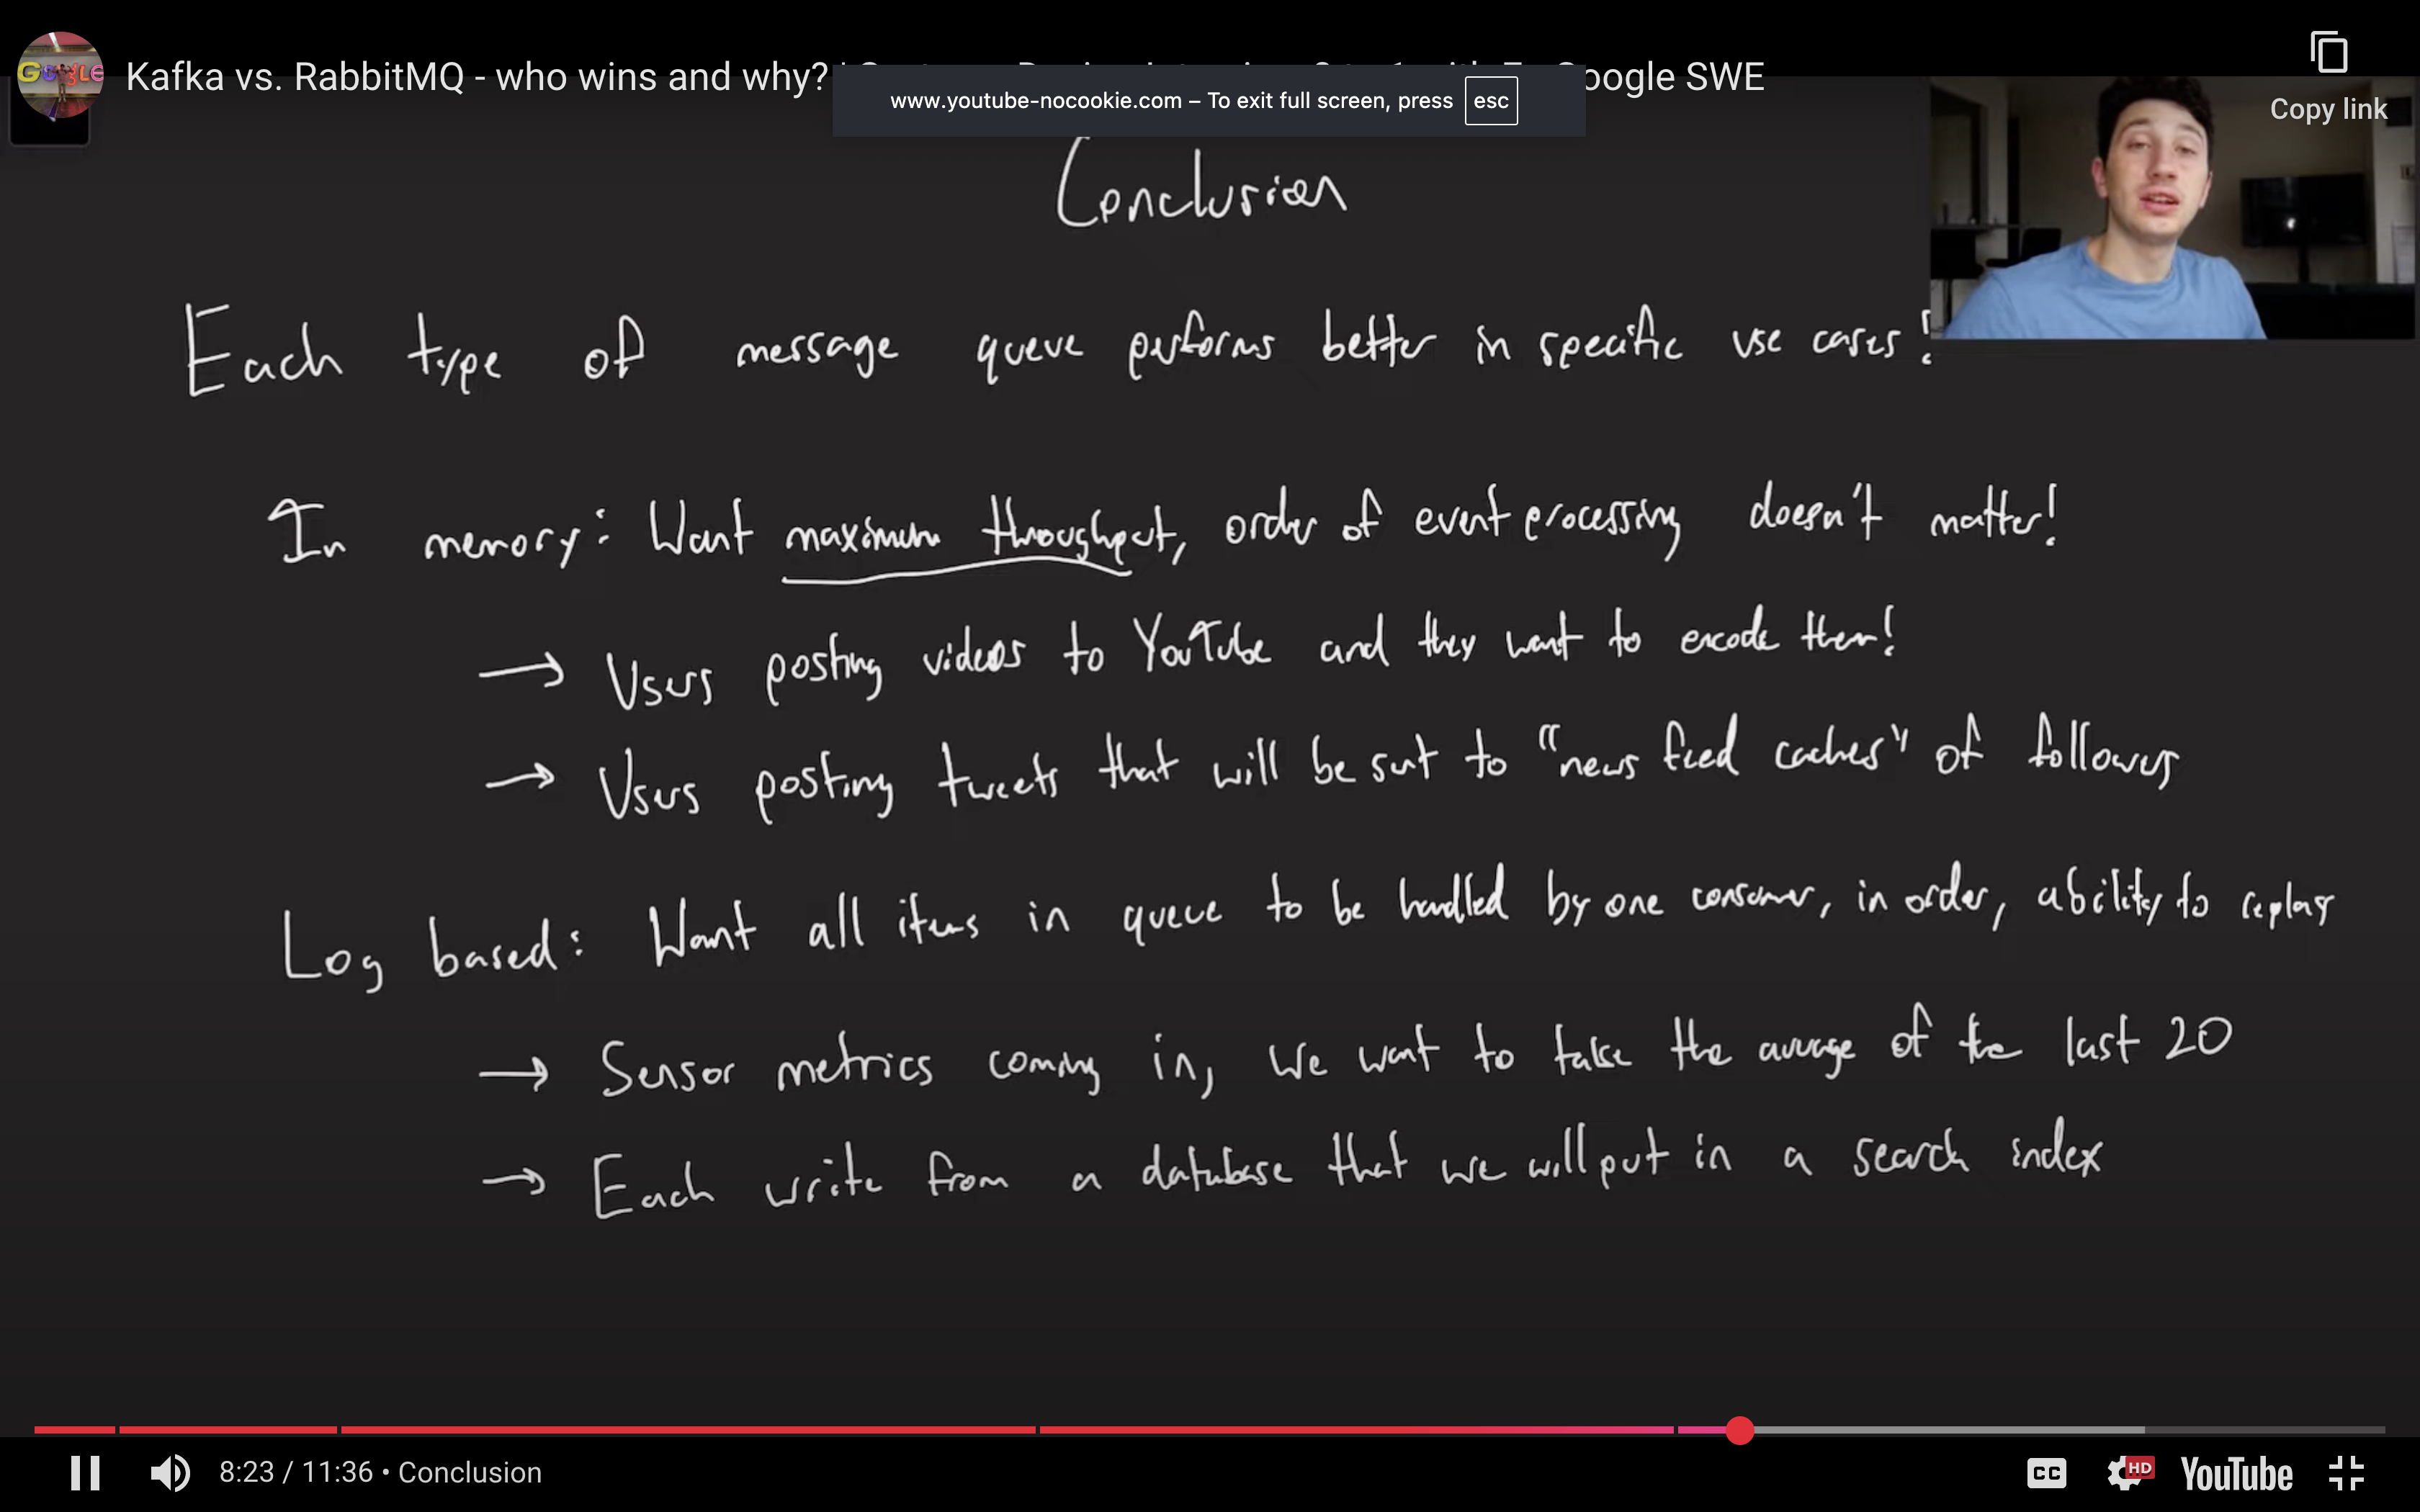 Kafka vs. RabbitMQ - who wins and why? oogle SWE
www.youtube-nocookie.com – To exit full screen, press esc
Copy link
Conclusion
Each type of message queue performs better in specific use cases!
In memory: Want maximum throughput, order of event processing doesn't matter!
→ Users posting videos to YouTube and they want to encode them!
→ Users posting tweets that will be sent to "news feed caches" of followers
Log based: Want all items in queue to be handled by one consumer, in order, ability to replay
→ Sensor metrics coming in, we want to take the average of the last 20
→ Each write from a database that we will put in a search index
8:23 / 11:36 • Conclusion
CC HD YouTube